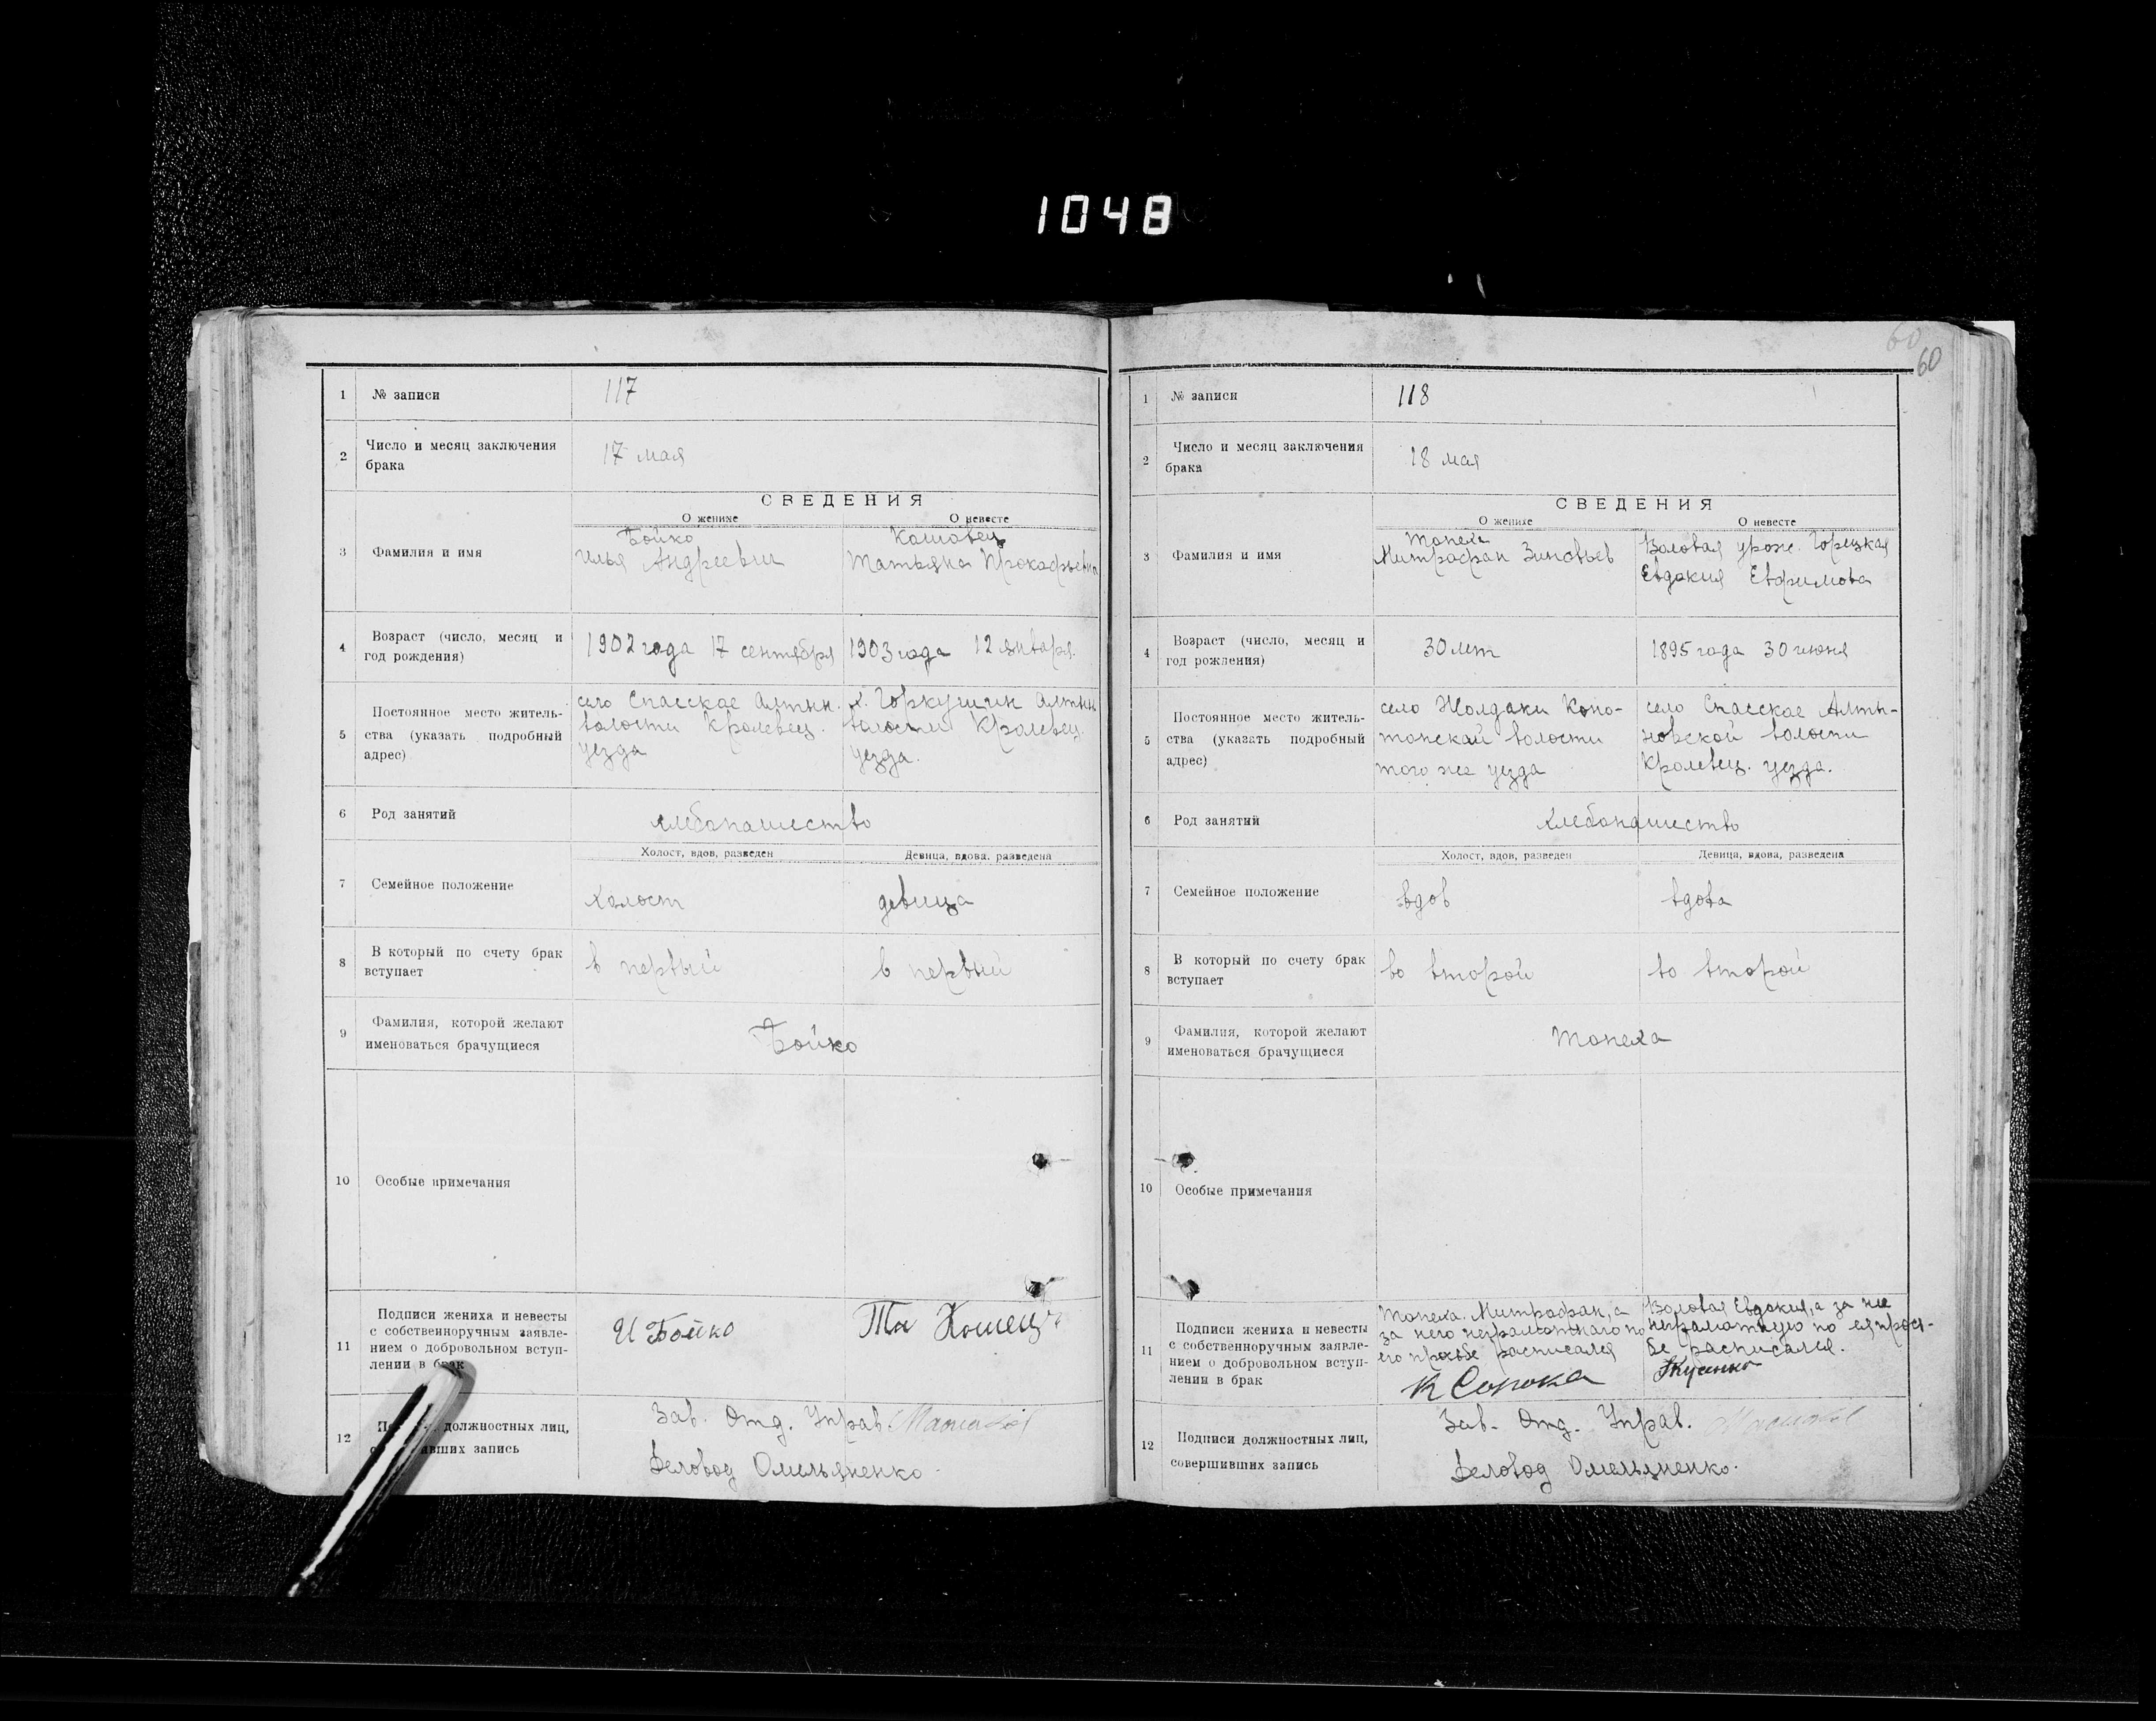 1048
1 № записи 117
2 Число и месяц заключения
брака
17 мая
СВЕДЕНИЯ
О женихе О невесте
3 Фамилия и имя
Бойко
Илья Андреевич
Кошовец
Татьяна Прокофьевна
4 Возраст (число, месяц и
год рождения)
1902 года 17 сентября
1903 года 12 января.
5 Постоянное место житель-
ства (указать подробный
адрес)
село Спасское Алтын.
волости Кролевец.
уезда
х. Горкушин Алтын
волости Кролевец.
уезда.
6 Род занятий
хлебопашество
Холост, вдов, разведен Девица, вдова, разведена
7 Семейное положение
холост девица
8 В который по счету брак
вступает
в первый в первый
9 Фамилия, которой желают
именоваться брачущиеся
Бойко
10 Особые примечания
11 Подписи жениха и невесты
с собственноручным заявле-
нием о добровольном вступ-
лении в брак
И Бойко
Та
12 должностных лиц,
запись
Зав. Отд. Управ.
Деловод Омельяненко.
60
60
1 № записи 118
2 Число и месяц заключения
брака
18 мая
СВЕДЕНИЯ
О женихе О невесте
3 Фамилия и имя
Топеха
Митрофан Зиновьев
Воловая урож. Горецкая
Евдокия Ефимова
4 Возраст (число, месяц и
год рождения)
30 лет
1895 года 30 июня
5 Постоянное место житель-
ства (указать подробный
адрес)
село Жолдаки Коно-
топской волости
того же уезда
село Спасское Алты-
новской волости
Кролевец. уезда.
6 Род занятий
хлебопашество
Холост, вдов, разведен Девица, вдова, разведена
7 Семейное положение
вдов вдова
8 В который по счету брак
вступает
во второй во второй
9 Фамилия, которой желают
именоваться брачущиеся
Топеха
10 Особые примечания
11 Подписи жениха и невесты
с собственноручным заявле-
нием о добровольном вступ-
лении в брак
Топеха Митрофан, а
за него неграмотнаго по
его просьбе расписался
К Сорока
Воловая Евдокия, а за нее
неграмотную по ея прось-
бе расписался.
12 Подписи должностных лиц,
совершивших запись
Зав. Отд. Управ.
Деловод Омельяненко.